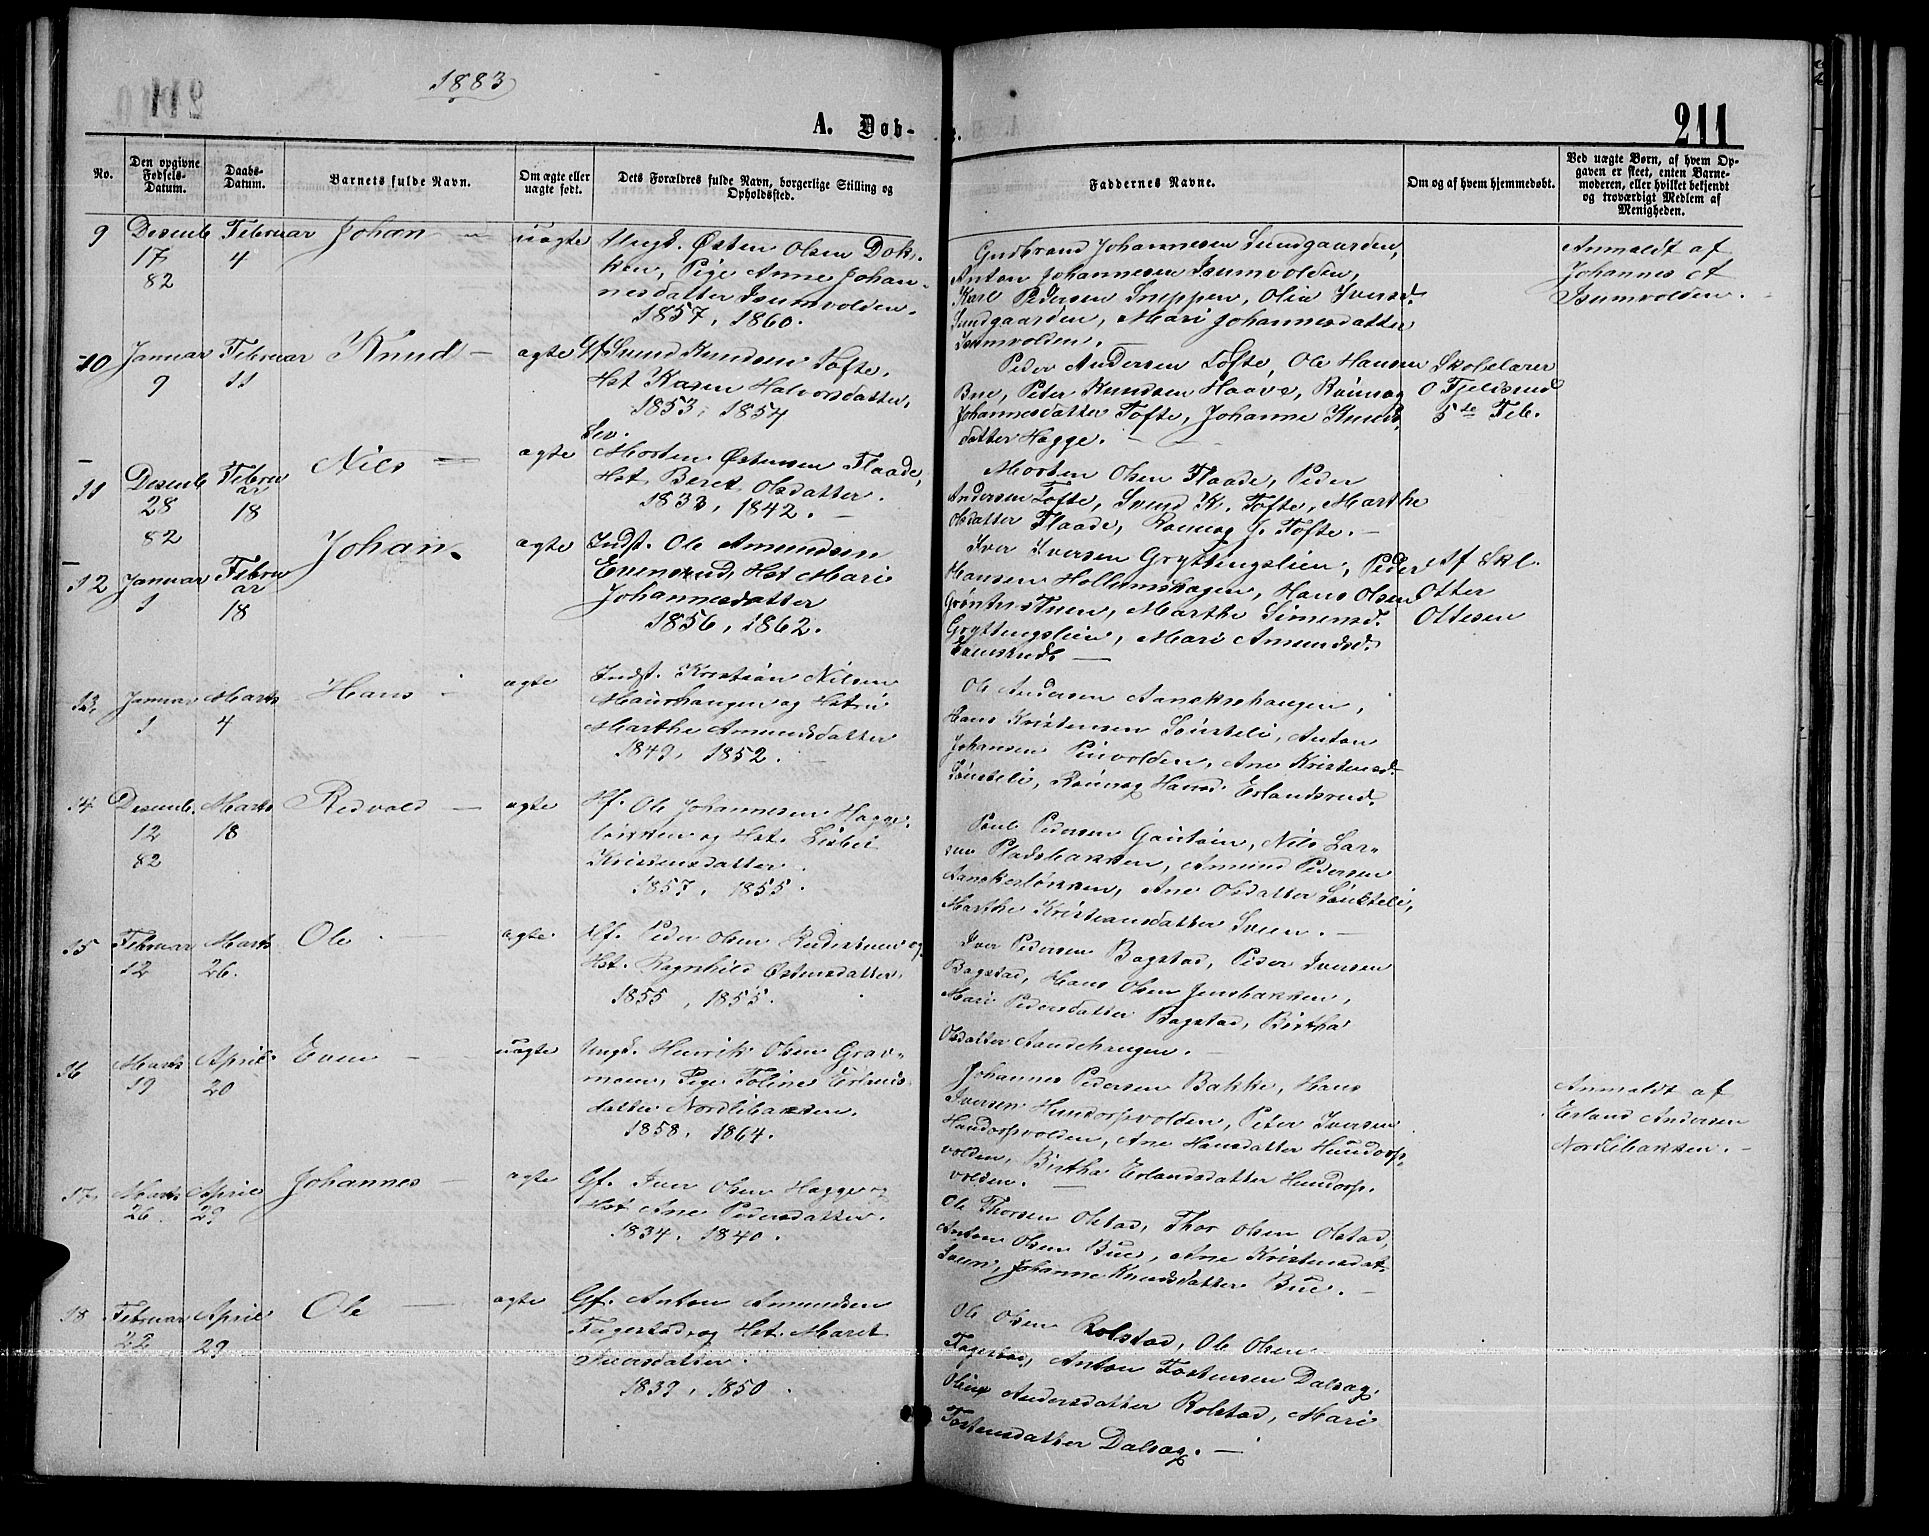 1883
211
A. Døb-
No.
Den opgivne Fødsels-Datum.
Daabs-Datum.
Barnets fulde Navn.
Om ægte eller uægte født.
Dets Forældres fulde Navn, borgerlige Stilling og Opholdssted.
Faddernes Navne.
Om og af hvem hjemmedøbt.
Ved uægte Børn, af hvem Opgaven er skeet, enten Barnemoderen, eller hvilket bekjendt og troværdigt Medlem af Menigheden.
9 Desemb Februar Johan — uagte Ungk. Østen Olsen Dok-
17 4 ken, Pige Anne Johan-
82 nesdatter Isumvolden.
1857, 1860.
Gudbrand Johannesen Sundgaarden,
Anton Johannesen Isumvolden,
Karl Pedersen Sneppen, Olia Iversd.
Sundgaarden, Mari Johannesdatter
Isumvolden. —
Anmaldt af
Johannes A
Isumvolden. -
10 Januar Februar Knud — agte Gf. Svend Knudsen Tofte,
9 11 Hst Karen Halvorsdatter,
1853, 1854
Peder Andersen Tofte, Ole Hansen
Bue, Peter Knudsen Haave, Rønnog
Johannesdatter Tofte, Johanne Knuds
datter Hagge. —
Skolelærer
O Fjeldsrud
5te Feb.
11 Desemb Februar Nils — agte Sev.
28 18 Morten Østensen Flaade,
82 Hst Beret Olsdatter.
1833, 1842. —
Morten Olsen Flaade, Peder
Andersen Tofte, Svend K. Tofte, Marthe
Olsdatter Flaade, Rønnog J. Tofte. —
12 Januar Februar Johan. agte Indst. Ole Amundsen
1 18 Evensrud, Hst Mari
Johannesdatter
1856, 1862.
Iver Iversen Gryttingslien, Peder
Hansen Hollumshagen, Hans Olsen
Grøntvedtuen, Marthe Simensd.
Gryttingslien, Mari Amundsd.
Evensrud. —
Af Skl.
Otter
Ottesen
13 Januar Marts Hans — agte Indst. Kristian Nilsen
1 4 Maurhaugen og Hstru
Marthe Amundsdatter
1849, 1852. —
Ole Andersen Aanekrehaugen,
Hans Kristensen Sønsteli, Anton
Johansen Piuvolden, Ane Kristensd.
Sønsteli, Rønnog Hansd. Erlandsrud.
14 Desemb. Marts Redvald — agte Hf. Ole Johannesen Hagge-
12 18 løkken og Hst. Lisbet
82 Kristensdatter.
1857, 1855.
Paul Pedersen Gautøin, Nils Lar-
sen Pladsbakken, Amund Pedersen
Aanekerløkken, Ane Olsdatter Sønsteli,
Marthe Kristiansdatter Sveen. —
15 Februar Marts Ole — agte. Gf. Peder Olsen og
12 26. Hst. Ragnhild Østensdatter
1855, 1855.
Iver Pedersen Bagstad, Peder Iversen
Bagstad, Hans Olsen Jensbakken,
Mari Pedersdatter Bagstad, Birtha
Olsdatter Aandehaugen. —
16 Marts April. Even — uagte Ungk. Henrik Olsen Grav-
19 20 moen, Pige Toline Erlands-
datter Nordlibakken.
1858, 1864.
Johannes Pedersen Bakke, Hans
Iversen Hundorpvolden, Peter Iversen
Hundorpvolden, Ane Hansdatter Hundorp-
volden, Birtha Erlandsdatter Hundorp-
volden. —
Anmaldt af
Erland Andersen
Nordlibakken. —
17 Marts April Johannes — agte Gf. Iver Olsen Hagge og
26. 29 Hst Ane Pedersdatter.
1834. 1840.
Ole Thorsen Olstad, Thor Olsen Olstad,
Anton Olsen Bue, Ane Kristensdat.
Sveen, Johanne Knudsdatter Bue. —
18 Februar April Ole — agte Gf. Anton Amundsen
22 29 Fagerstad og Hst. Maret
Iversdatter.
1839, 1850.
Ole Olsen Rolstad, Ole Olsen
Fagerstad, Anton Tostensen Dalsæg,
Oline Andersdatter Rolstad, Mari
Tostensdatter Dalsæg. —